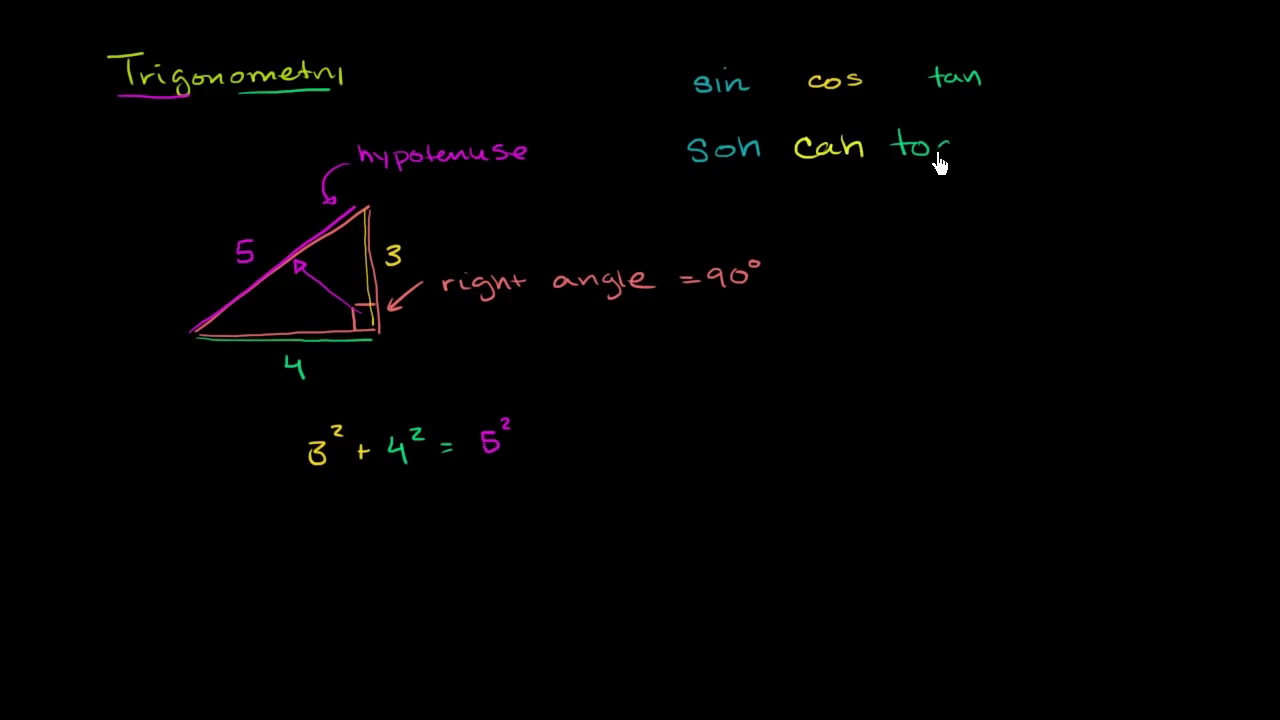 Trigonometry
sin cos tan
soh cah to
hypotenuse
5
3
right angle = 90°
4
3² + 4² = 5²